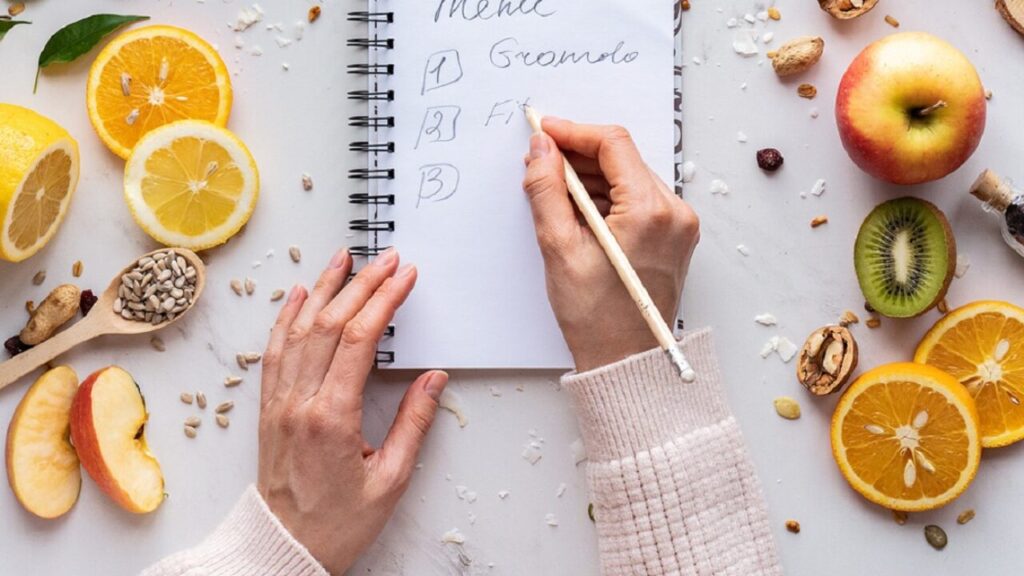 Menu
1) Granola
2) Fi
3)